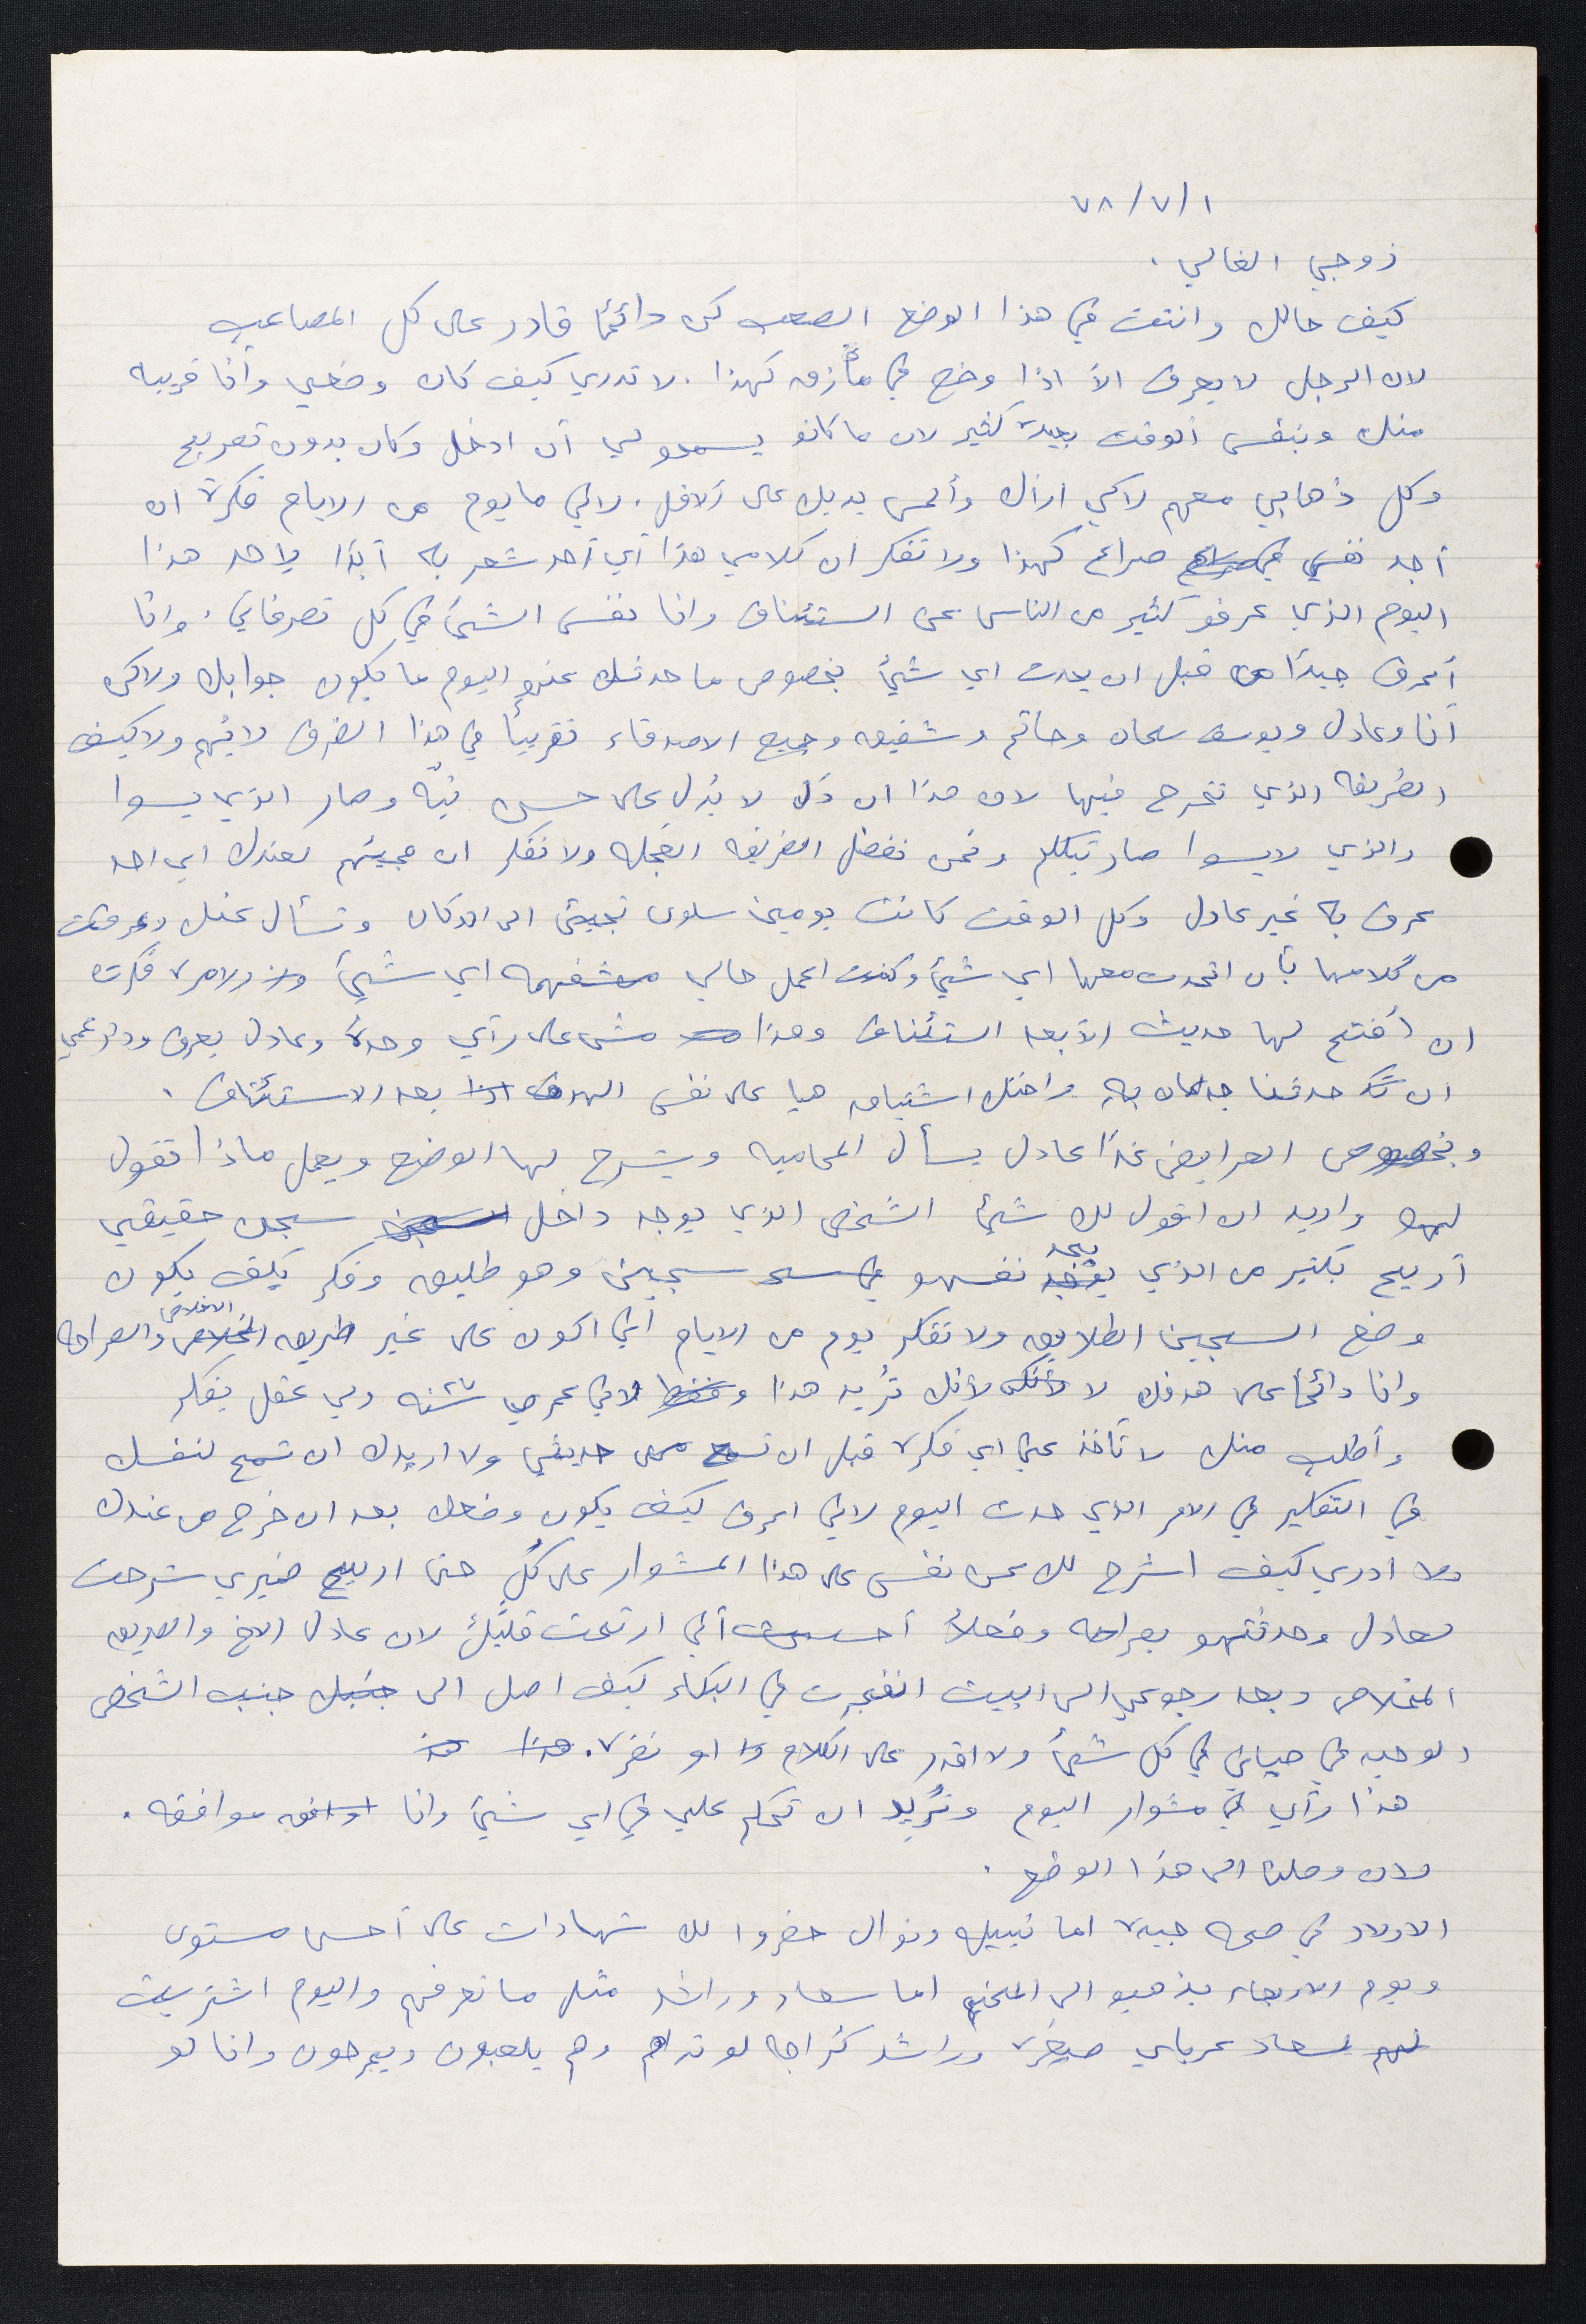 ٧٨/٧/١
زوجي الغالي .
كيف حالك وانتت في هذا الوضع الصعب كن دائمًا قادر على كل المصاعب
لان الرجل لا يعرف الا اذا وضع في مأزق كهذا . لا تدري كيف كان وضعي وأنا قريبه
منك وبنفس الوقت بعيدة كثير لان ما كانو يسمحو لي أن ادخل وكان بدون تصريح
وكل ذهابي معهم لاكي اراك وألمس يديك على الاقل . لاني ما يوم من الايام فكرة ان
أجد نفسي في صراع كهذا ولا تفكر ان كلامي هذا أي أحد شعر به أبدًا لاحد هذا
اليوم الذي عرفو كثير من الناس عن الستئناف وانا نفس الشئ في كل تصرفاتي . وانا
أعرف جيدًا من قبل ان يحدث اي شئ بخصوص ما حدثك عنهو اليوم ما يكون جوابك ولاكن
أنا وعادل ويوسف سلمان وحاتم وشفيق وجميع الاصدقاء تقريبًا في هذا الضرف لا فيهم ولا كيف
الطريقه الذي نتحرج فيها لان هذا ان دَل لا يدل على حسن نيّه وصار الذي يسوا
والذي لا يسوا صار يتكلم ونحن نفضل الطريقه الفجله ولا تفكر ان مجيئهم لعندك اي احد
عرف به غير عادل وكل الوقت كانت يومين سلوى تجيئ الى الدكان وتسأل عنك وعرفت
من كلامها بأن اتحدث معها اي شئ وكنت اعمل حالي مشفهمه اي شئ ولامرة فكرت
ان أفتح لها حديث الا بعد استئناف وهذا مشى على رأي وحدة وعادل يعرف وولاد عمي
ان حدثنا جدعان به واختك اشتياق هيا على نفس الهدف بعد الاستئناف .
وبخصوص العرايض غدًا عادل يسأل المحاميه ويشرح لها الوضع ويعمل ماذا تقول
لهو واريد ان اقول لك شئ الشخص الذي يوجد داخل سجن حقيقي
أريح بكثير من الذي يجد نفسهو سجين وهو طليق وفكر كيف يكون
وضع السجين الطلايق ولا تفكر يوم من الايام أني اكون على غير طريق الاخلاص والصراحه
وانا دائمًا على هدفك لا لأنك تُريد هذا وفقط لاني عمري سنه ولي عقل يفكر
وأطلب منك لا تأخذ عني اي فكرة قبل ان تسمع مني حديثي ولا اريدك ان تسمح لنفسك
في التفكير في الامر الذي حدث اليوم لاني اعرف كيف يكون وضعك بعد ان خرج من عندك
ولا ادري كيف اشرح لك عن نفسي على هذا المشوار على كلٍ حتى اريح ضميري شرحت
لعادل وحدثتهو بصراحه وفعلاً أحسست أني ارتحت قليلاً لان عادل الاخ والصديق
المخلاص وبعد رجوعي الى البيت انفجرت في البكاء كيف اصل الى جنبك جنب الشخص
الوحيد في حياتي في كل شئ ولا اقدر على الكلام او نضرة . هذا
هذا رأي في مشوار اليوم وتُريد ان تحكم علي في اي شئ وانا موافقه .
لان وصلنا الى هذا الوضع .
الاولاد في صحه جيدة اما نبيله ونوال حضروا لك شهادات على أحسن مستوى
ويوم الاربعاء يذهبو الى المخيم اما سعاد وراشد مثل ما تعرفهم واليوم اشتريت
لهم لسعاد عرباي صغيرة وراشد كراجه لو تراهم وهم يلعبون ويمرحون وانا لو